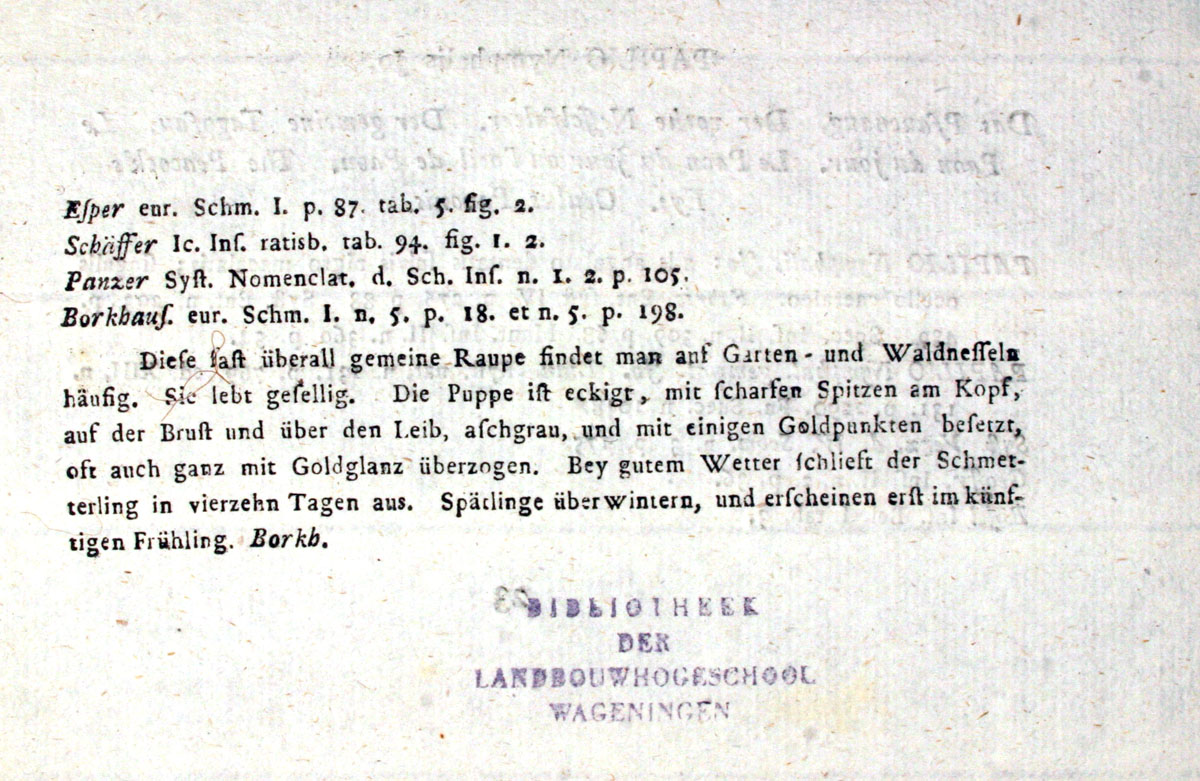 Eſper eur. Schm. I. p. 87. tab. 5. fig. 2.
Schäffer Ic. Inſ. ratisb. tab. 94. fig. 1. 2.
Panzer Syſt. Nomenclat. d. Sch. Inſ. n. 1. 2. p. 105.
Borkhauſ. eur. Schm. I. n. 5. p. 18. et n. 5. p. 198.
Dieſe faſt überall gemeine Raupe findet man auf Garten- und Waldneſſeln
häufig. Sie lebt geſellig. Die Puppe iſt eckigt, mit ſcharfen Spitzen am Kopf,
auf der Bruſt und über den Leib, aſchgrau, und mit einigen Goldpunkten beſetzt,
oft auch ganz mit Goldglanz überzogen. Bey gutem Wetter ſchlieſt der Schmet-
terling in vierzehn Tagen aus. Spätlinge überwintern, und erſcheinen erſt im künf-
tigen Frühling. Borkh.
BIBLIOTHEEK
DER
LANDBOUWHOGESCHOOL
WAGENINGEN